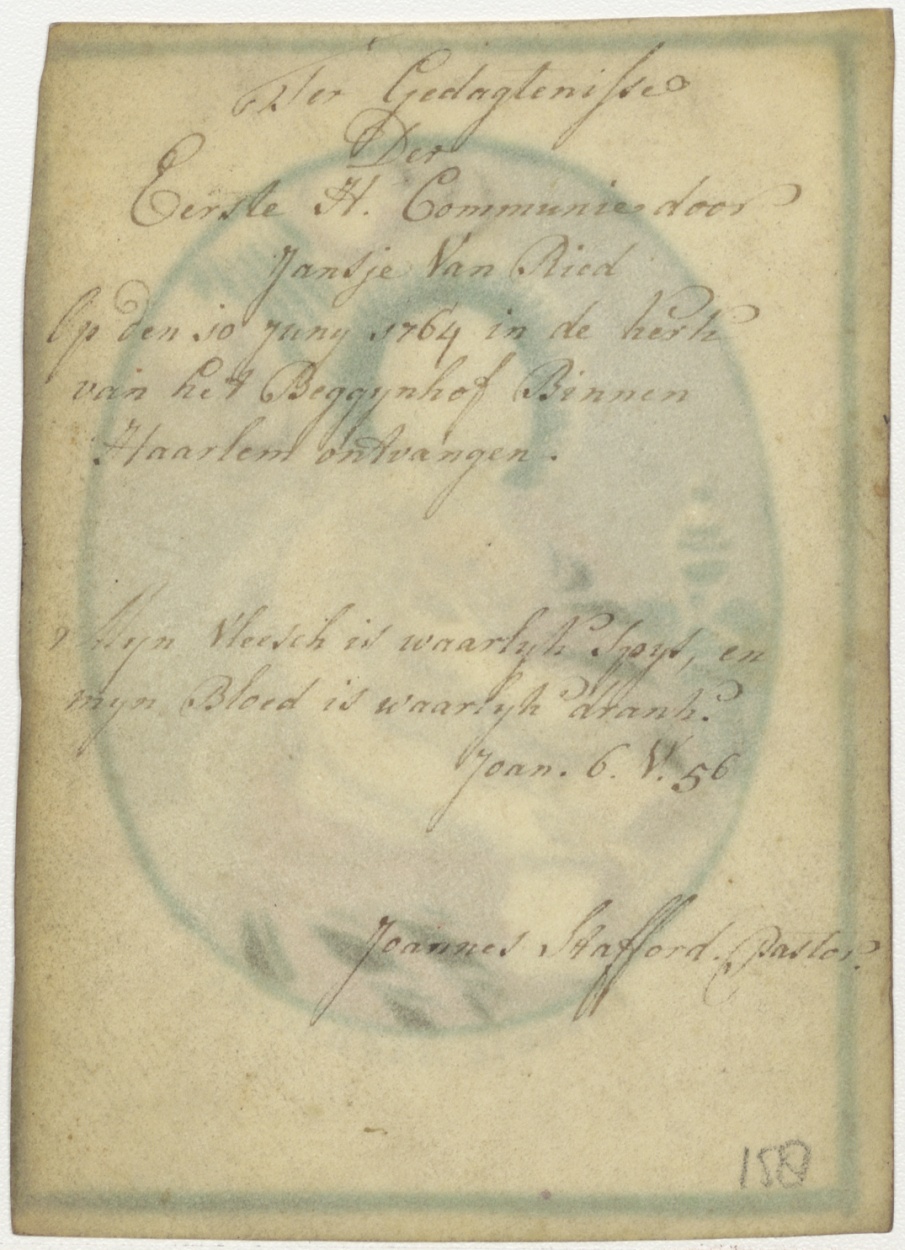 Ter Gedagtenisse
Der
Eerste H. Communie door
Jansje Van Ried
Op den 10 Juny 1764 in de kerk
van het Beggynhof Binnen
Haarlem ontvangen.
Myn Vleesch is waarlyk Spys, en
myn Bloed is waarlyk drank.
Joan. 6. V. 56
Joannes Stafford. Pastor.